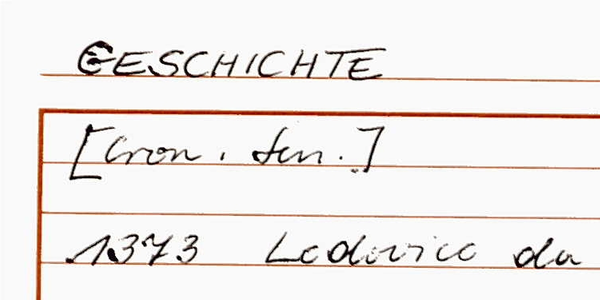 GESCHICHTE
[Cron. sen.]
1373 Lodovico da